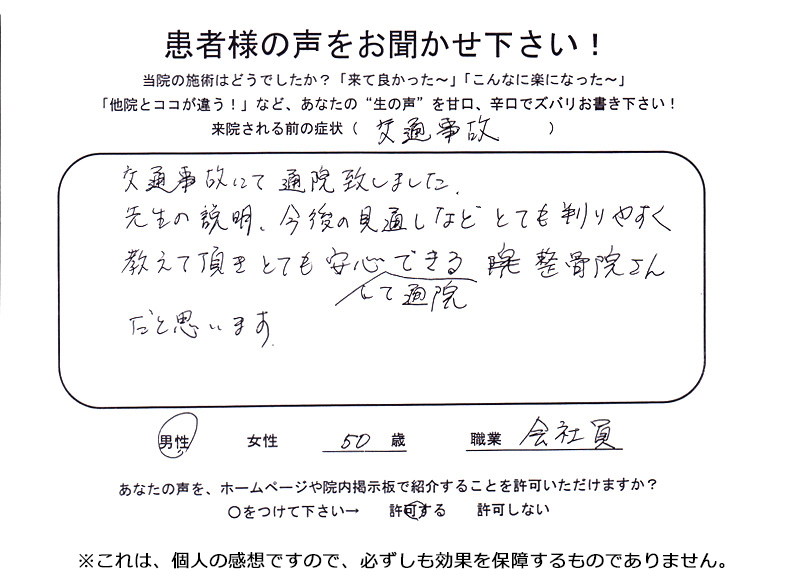 患者様の声をお聞かせ下さい！
当院の施術はどうでしたか？「来て良かった～」「こんなに楽になった～」
「他院とココが違う！」など、あなたの“生の声”を甘口、辛口でズバリお書き下さい！
来院される前の症状（ 交通事故 ）
交通事故にて通院致しました.
先生の説明、今後の見通しなどとても判りやすく
教えて頂きとても安心できる 整骨院さん
して通院
だと思います.
男性 女性 50 歳 職業 会社員
あなたの声を、ホームページや院内掲示板で紹介することを許可いただけますか？
○をつけて下さい→ 許可する 許可しない
※これは、個人の感想ですので、必ずしも効果を保障するものでありません。